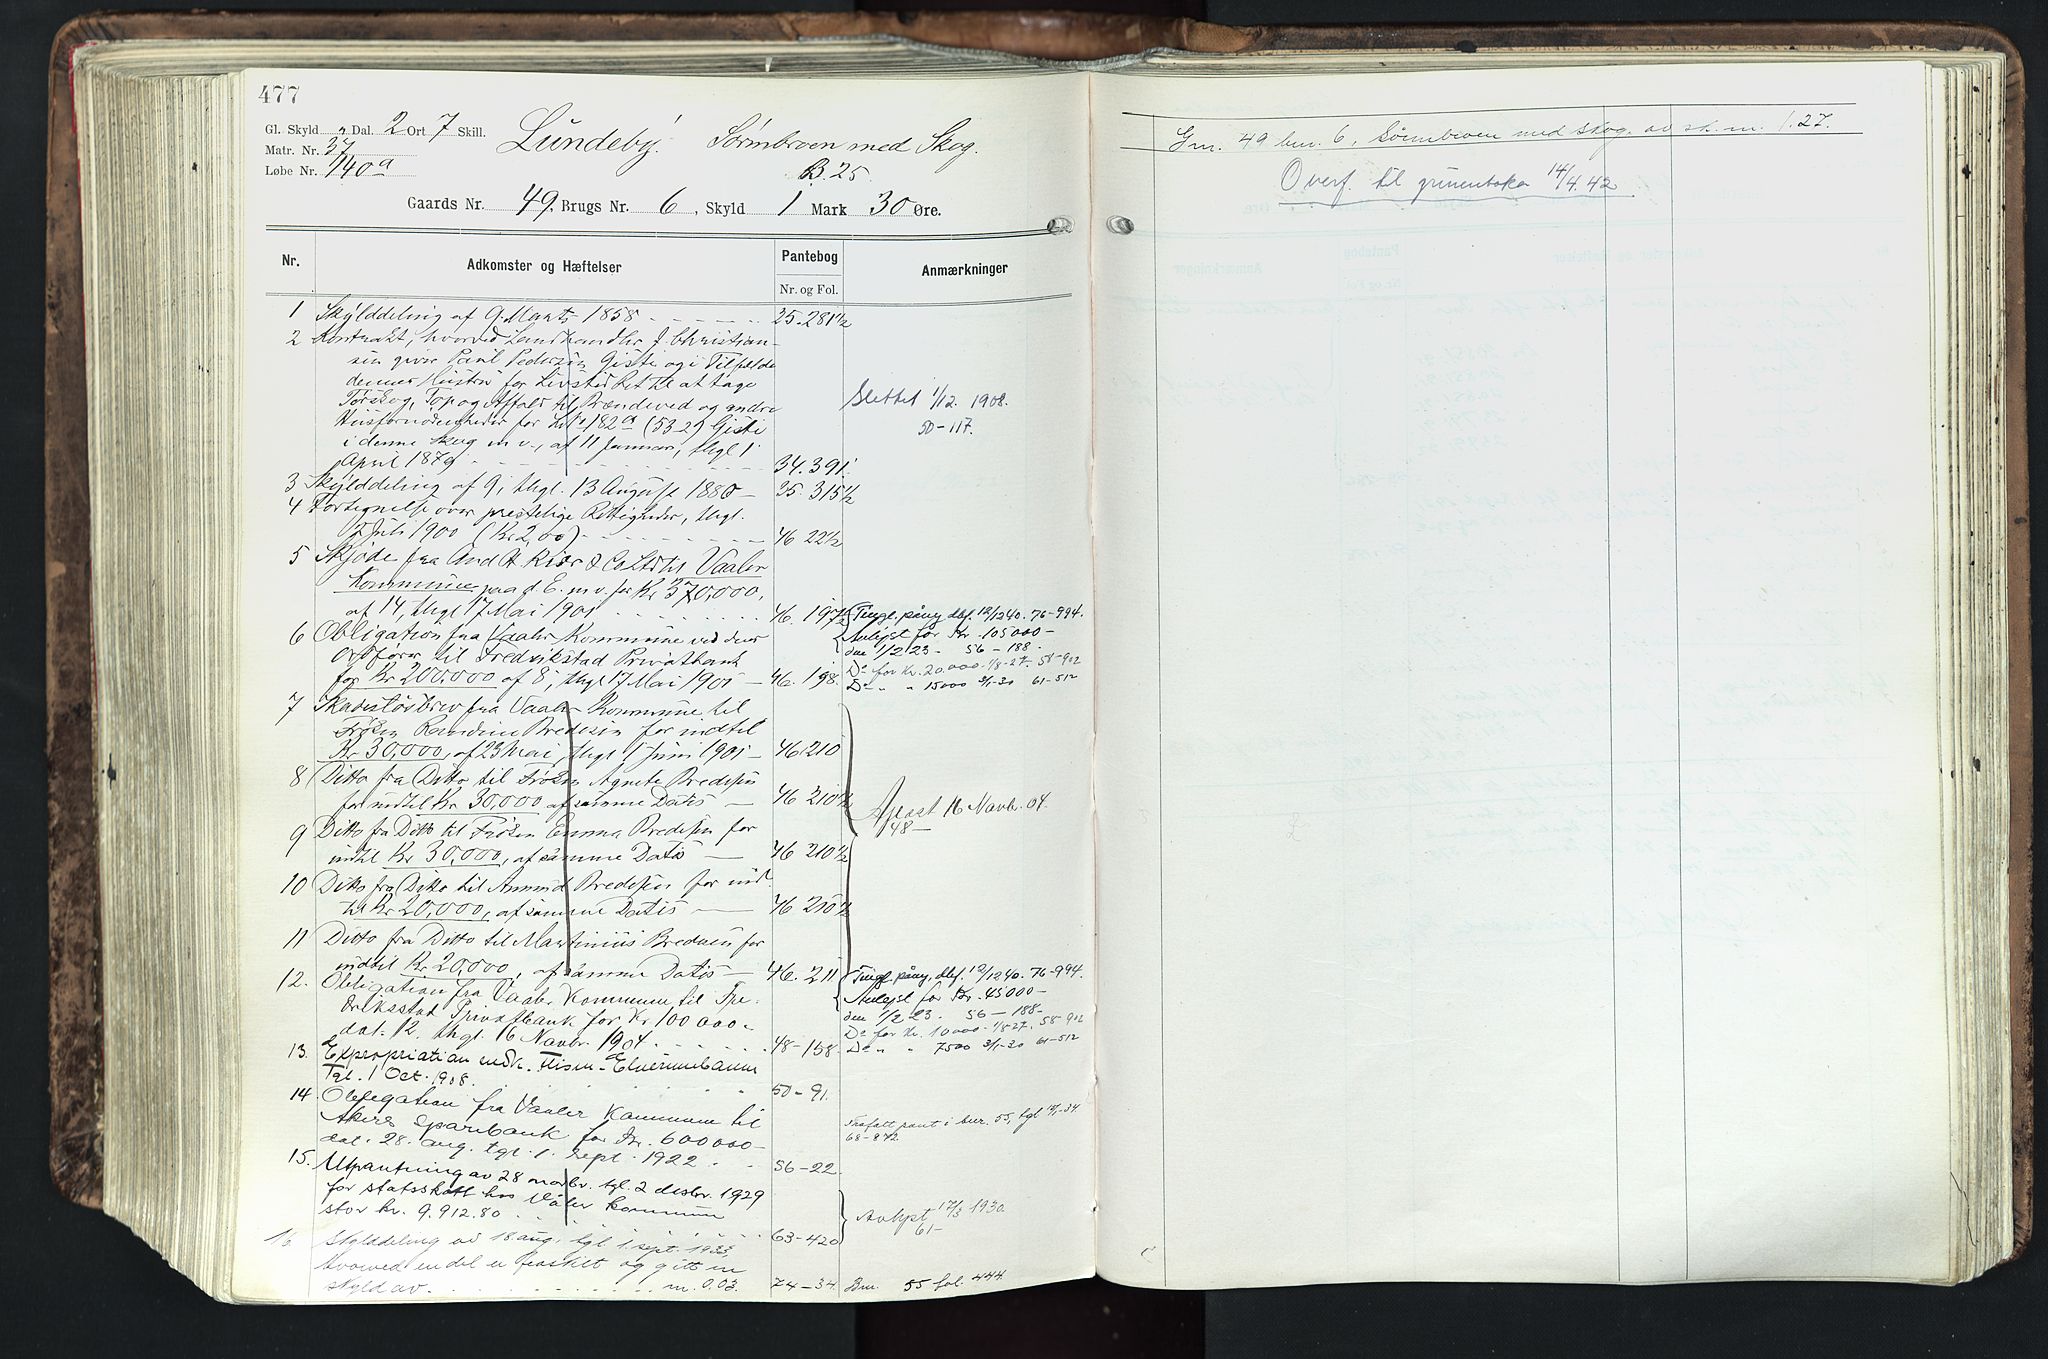 477
Gl. Skyld " Dal. 2 Ort 7 Skill.
Matr. Nr. 37
Løbe Nr. 140a
Lundeby. Sørmbroen med Skog.
B. 25.
Gaards Nr. 49, Brugs Nr. 6, Skyld 1 Mark 30 Øre.
Nr. Adkomster og Hæftelser Pantebog Anmærkninger
Nr. og Fol.
1 Skylddeling af 9 Marts 1858 25. 281½
2 Kontrakt, hvorved Landhandler J. Christian-
sen giver Paul Pedersen Gisti og i Tilfælde
dennes Hustru for Livstid Ret til at tage
Tørskog, Top og Affald til Brændeved og andre
Husfornødenheder for Lb 182a (53-2) Gisti
i denne Skog m v., af 11 Januar, thgl 1
April 1879 34. 391.
Slettet 1/12. 1908.
50-117.
3 Skylddeling af 9, thgl. 13 August 1880 35. 315½
4 Fortegnelse over prestelige Rettigheder, thgl.
Juli 1900 (Kr 2,00) 46 22½
5 Skjøde fra And H Kiær & Co Ltd til Vaaler
Kommune paa d. E. m v. for Kr 370,000,
af 14, thgl 17 Mai 1901 46. 197½
6 Obligation fra Vaaler Kommune ved dens
Ordfører til Fredrikstad Privatbank
for Kr 200,000 af 8, thgl 17 Mai 1901 46. 198.
Tingl. påny dbf. 12/12 40. 76-994.
Avlyst for Kr. 105000-
den 1/2 23. 56-188.
Do for Kr. 20.000. 1/8-27. 58-902
Do " " 15000 3/1-30 61-512
7 Skadesløsbrev fra Vaaler Kommune til
Frøken Randine Bredesen for indtil
Kr 30,000, af 23 Mai, thgl 1 Juni 1901 46. 210
8 Ditto fra Ditto til Frøken Agnete Bredesen
for indtil Kr 30,000 af samme Dato 46 210½
9 Ditto fra Ditto til Frøken Emma Bredesen for
indtil Kr 30,000, af samme Dato 46 210½
Aflæst 16 Novbr. 04.
48-
10 Ditto fra Ditto til Amund Bredesen for ind-
til Kr 20,000, af samme Dato 46 210½
11 Ditto fra Ditto til Martinius Bredesen for
indtil Kr 20,000, af samme Dato 46. 211
12. Obligation fra Vaaler Kommune til Fre-
drikstad Privatbank for Kr. 100 000-
dat. 12. thgl. 16 Novbr. 1904. 48-158.
Tingl. påny. dbf. 12/12 40. 76-994.
Avlyst for Kr. 45000-
den 1/2 23. 56-188-
Do for Kr. 10000. 1/8 27. 58-902
Do " " 7500 3/1-30 61-512
13. Expropriation vedk. Flisen-Elverumbanen
Tgl. 1 Oct. 1908. 50-91.
14. Obligation fra Vaaler Kommune til
Akers Sparebank for Kr. 600 000-
dat. 28. aug. tgl. 1. sept. 1922. 56-22
Frafalt pant i bnr. 55, tgl -34.
68-872
15. Utpantning av 28 novbr. tgl. 2 desbr. 1929
for statsskatt hos Våler Kommune
stor kr. 9.912.80 63-420
Avlyst 17/3 1930.
61-
16. Skylddeling av 18 aug., tgl 1. sept. 1933,
hvorved en del er fraskilt og gitt en
skyld av m. 0.03. 74-34. Bnr. 55 fol. 444.
Gnr. 49 bnr. 6, Sørmbroen med skog, av sk. m. 1.27.
Overf. til grunnboka 14/4. 42